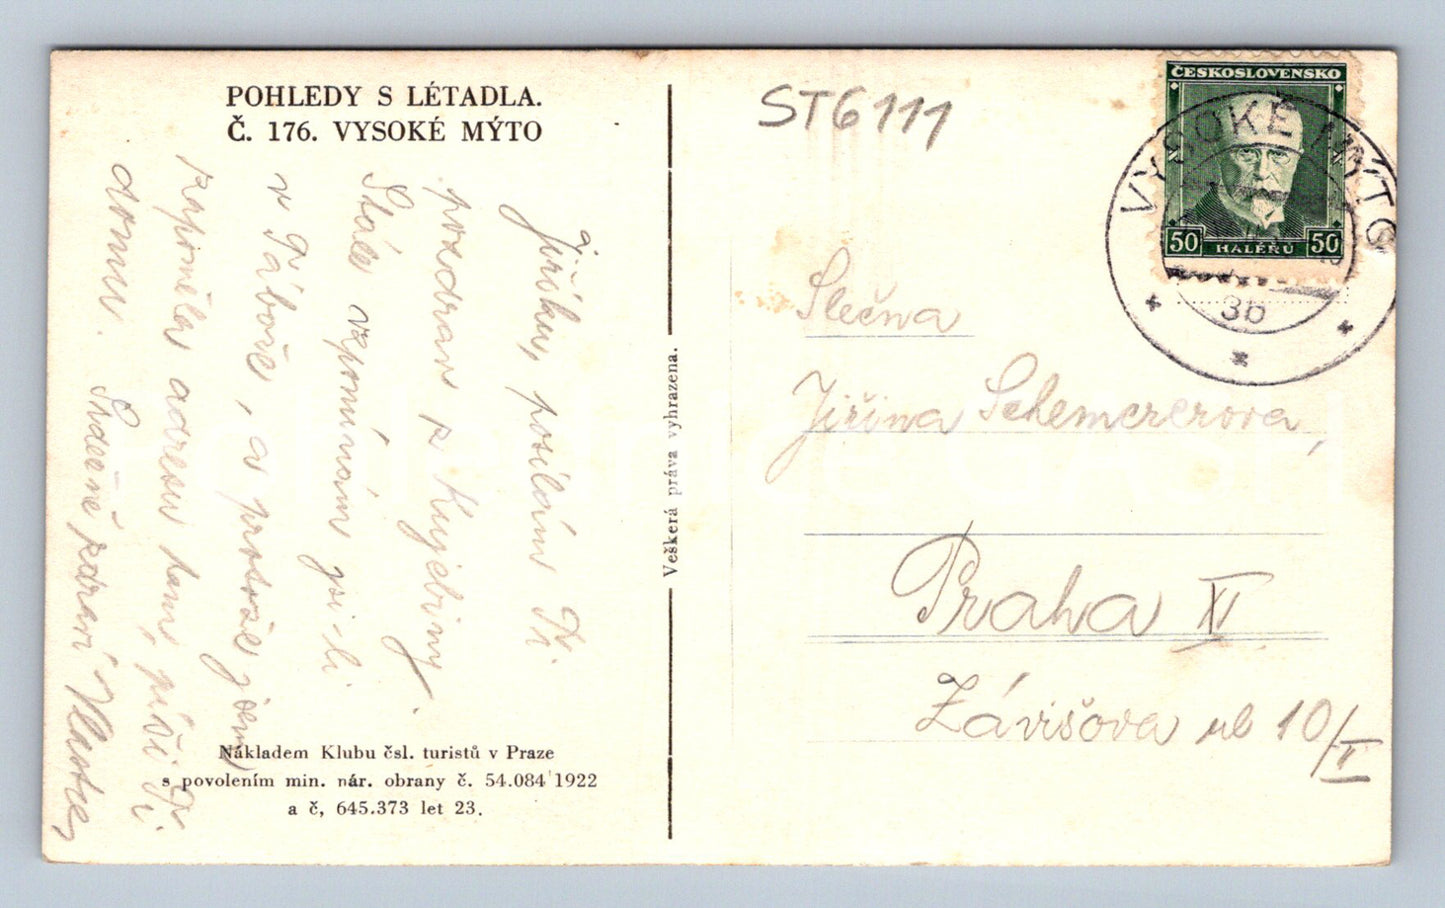 POHLEDY S LÉTADLA.
Č. 176. VYSOKÉ MÝTO
Jiřišku, posílám Ti
pozdrav z
Stále vzpomínám jsi-li
v Táboře, a protože jsem
zapoměla adresu tam, píši Ti
domu.
Srdečně zdraví
Nákladem Klubu čsl. turistů v Praze
s povolením min. nár. obrany č. 54.084 1922
a č, 645.373 let 23.
Veškerá práva vyhrazena.
ST6111
ČESKOSLOVENSKO
50 HALÉŘŮ 50
VYSOKÉ MÝTO
36
Slečna
Jiřina Schemererova,
Praha XI
Závišova ul 10/I